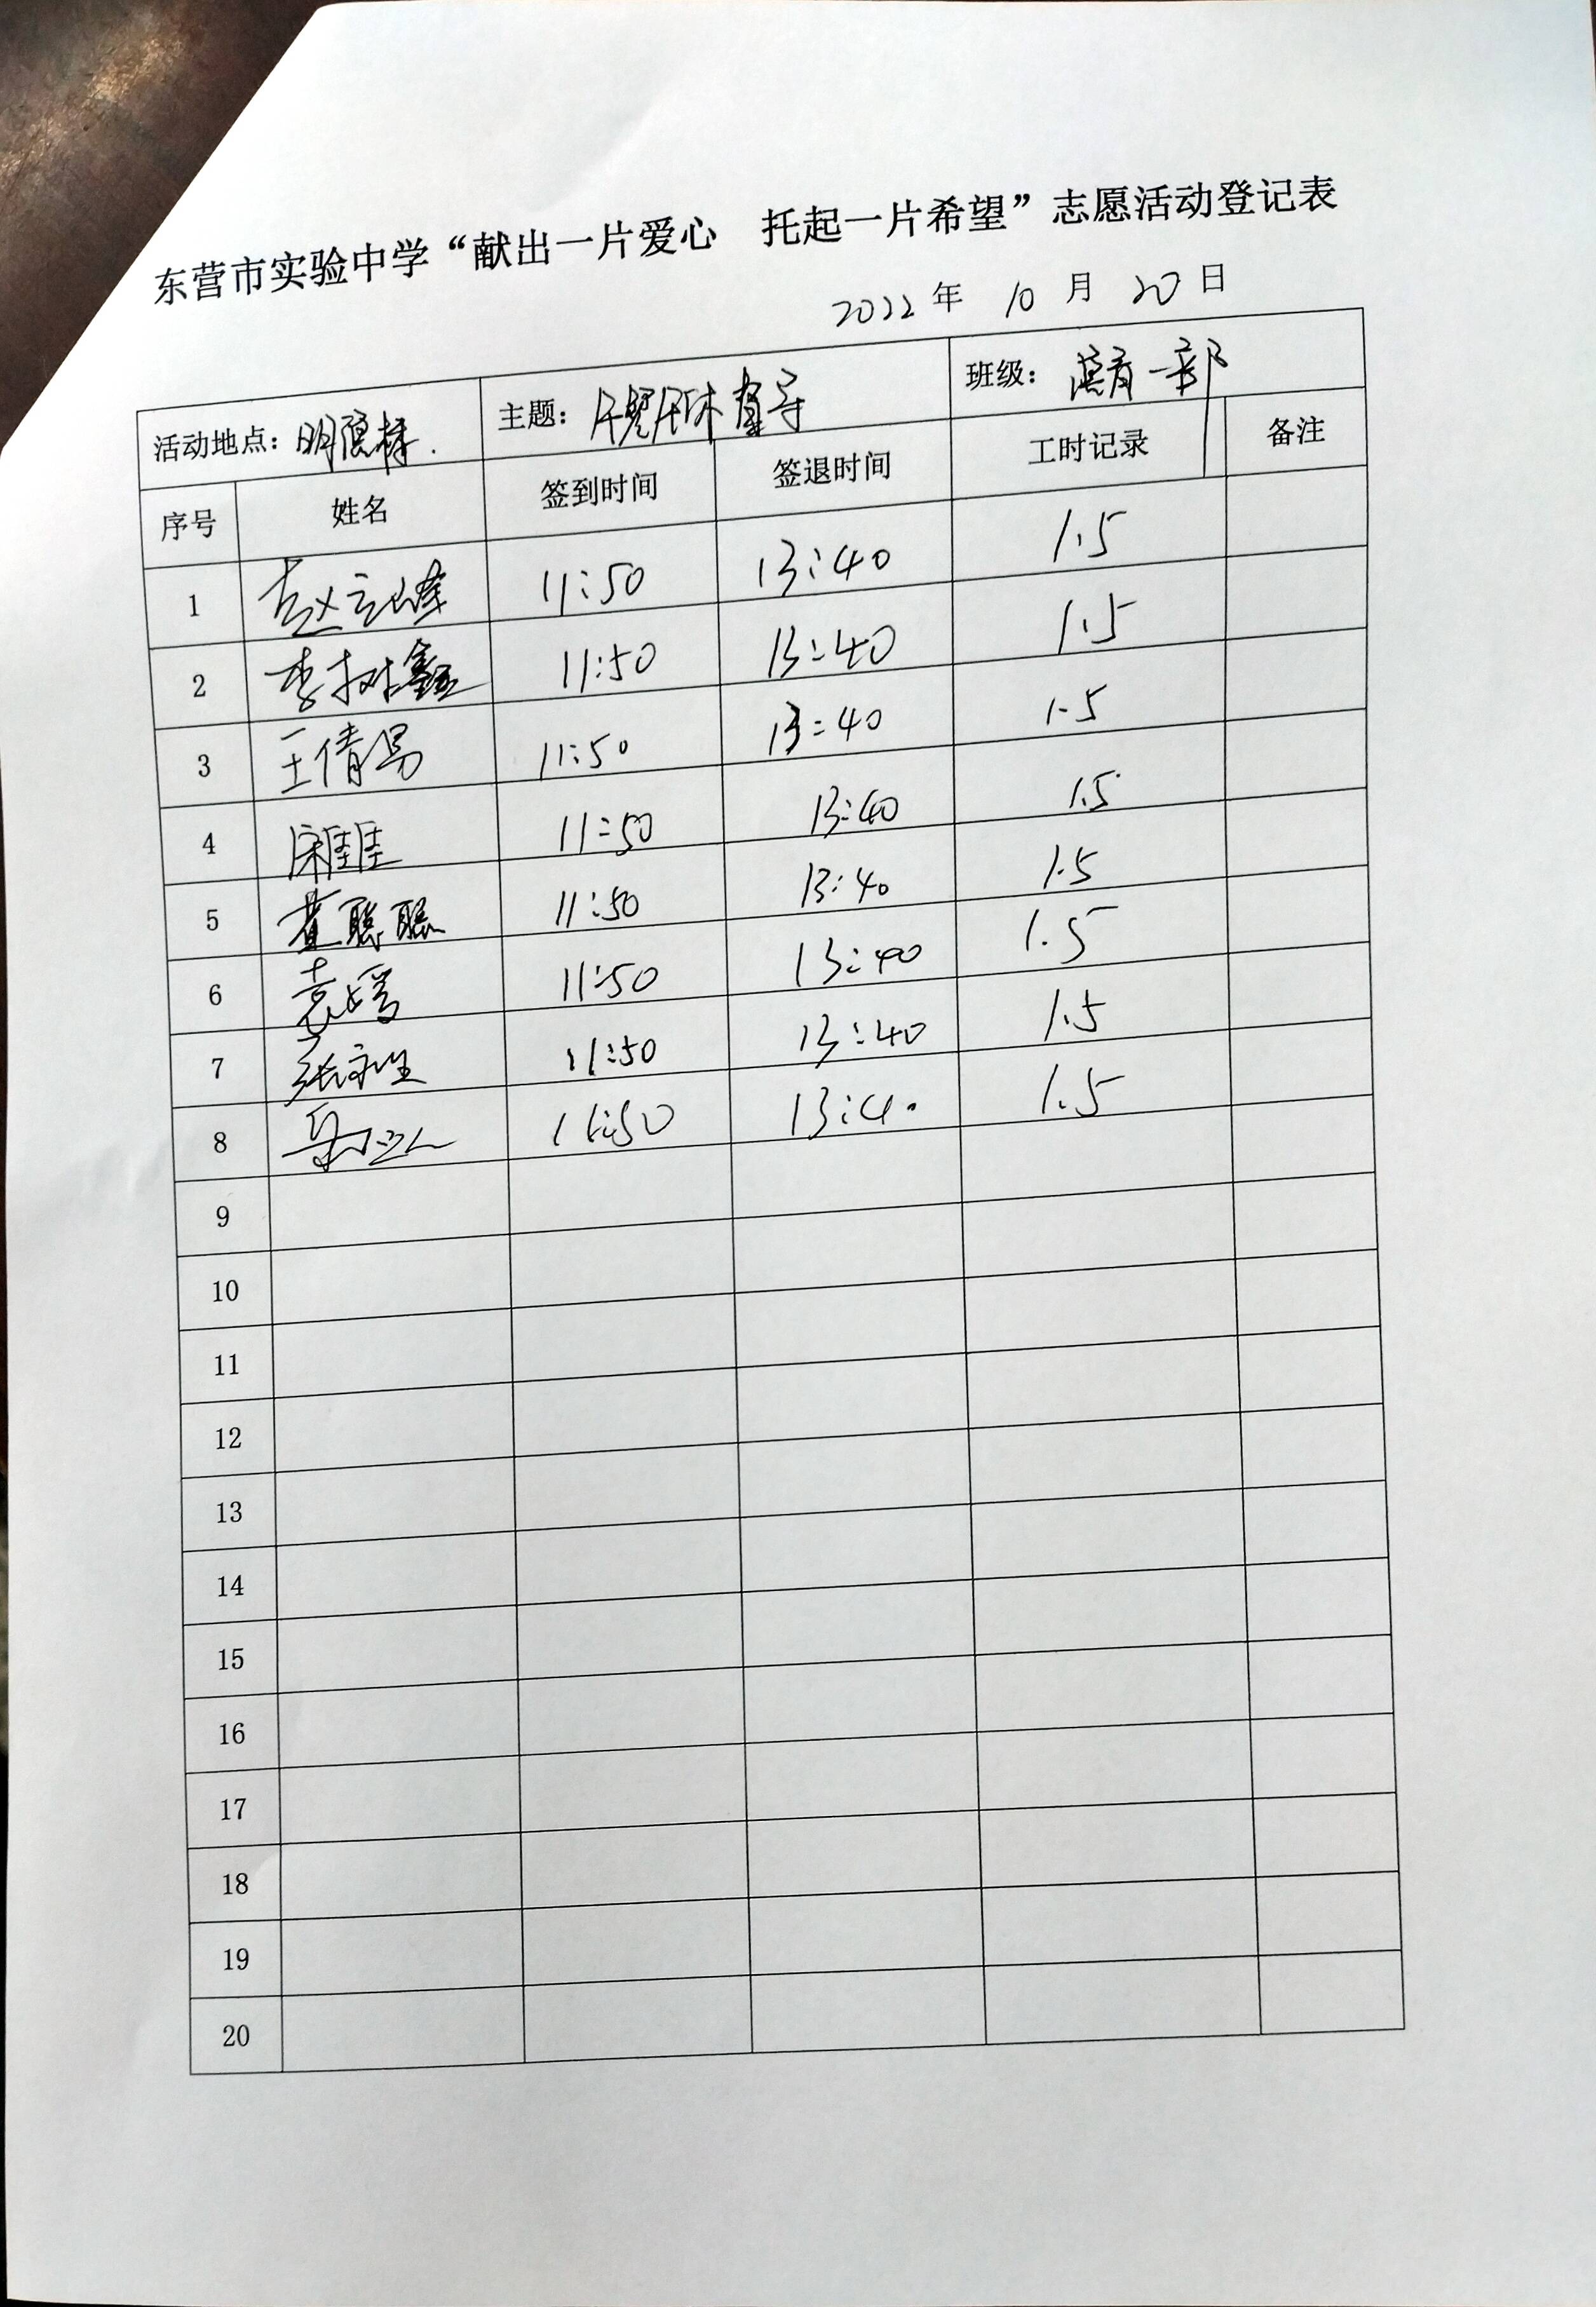 东营市实验中学“献出一片爱心 托起一片希望”志愿活动登记表
2022年 10 月 20 日
活动地点：明德楼. 主题：午餐午休 督导 班级： 一部
序号 姓名 签到时间 签退时间 工时记录 备注
1 赵 11:50 13:40 1.5
2 李树鑫 11:50 13:40 1.5
3 王倩男 11:50 13:40 1.5
4 11:50 13:40 1.5
5 董聪聪 11:50 13:40 1.5
6 袁媛 11:50 13:40 1.5
7 张 11:50 13:40 1.5
8 11:50 13:40 1.5
9
10
11
12
13
14
15
16
17
18
19
20